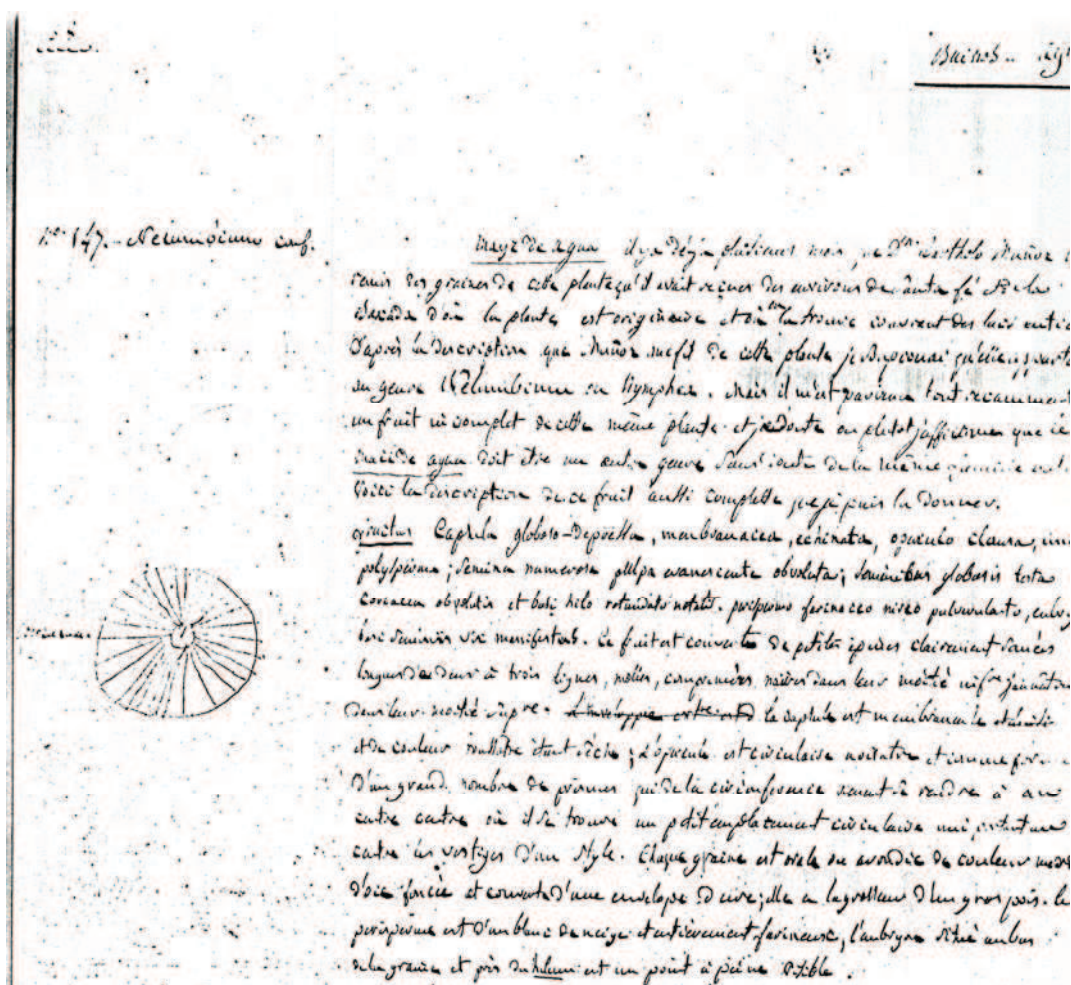 58.
Buenos - ay
N.º 147. - Nelumbium conf.
mayz de agua il y a déja plusieurs mois, que Dn. Bartholo Muñoz
remis des graines de cette plante qu'il avait reçues des environs de Santa fé de la
d'où la plante est originaire et où on la trouve couvrant des lacs entie
D'après la description que Muñoz me fit de cette plante je supposai qu'elle appart
au genre Nelumbium ou Nymphea. Mais il m'est parvenu tout recemment
un fruit incomplet de cette même plante et je doute ou plutot j'affirme que le
maïs de agua doit être un autre genre sans doute de la même famille
Voici la description de ce fruit aussi complette que je puis la donner.
fructus Capsula globoso-depressa, membranacea, echinata, operculo clausa, uni
polysperma; Semina numerosa pulpa evanescente obvoluta; seminibus globosis testa
coriacea obvolutis et basi hilo rotundato notatis. perispermo farinaceo niveo pulverulento, embry
basi seminis vix manifesto. Ce fruit est couverte de petites épines clairement
longues de deux à trois lignes, molles, comprimées, noires dans leur moitié infre jaunâtres
dans leur moitié supre. L'enveloppe la capsule est membraneuse
et de couleur roussâtre étant sèche; L'opercule est circulaire noirâtre et comme formé
D'un grand nombre de qui de la circonférence vont se rendre à un
autre centre où il se trouve un petit emplacement circulaire uni,
entre les vestiges d'un style. Chaque graine est ovale ou arrondie de couleur
d'oie foncée et couverte d'une envelope dure; elle a la grosseur d'un gros pois. le
perisperme est d'un blanc de neige et entièrement farineux, l'embryon situé au bas
de la graine et près du hilum est un point à peine visible.